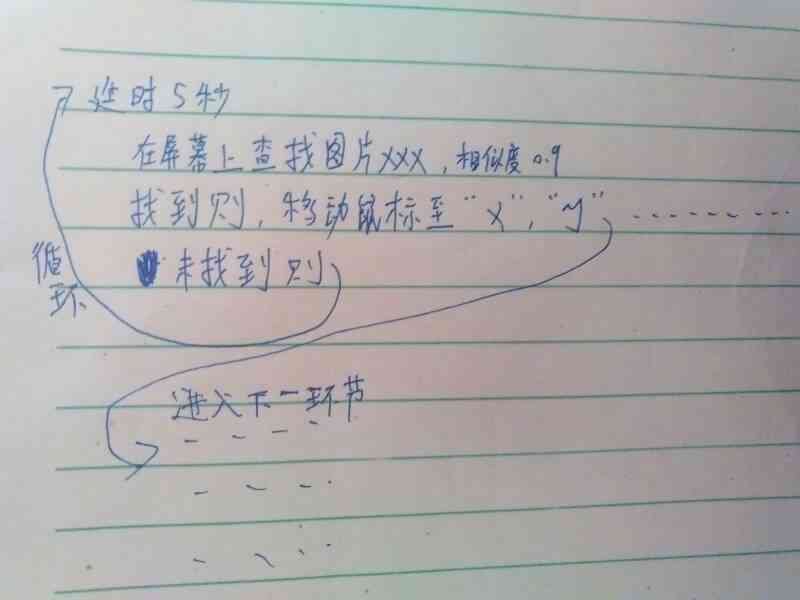 延时5秒
在屏幕上查找图片XXX,相似度0.9
找到则,移动鼠标至"x","y" ---------
未找到则
循环
进入下一环节